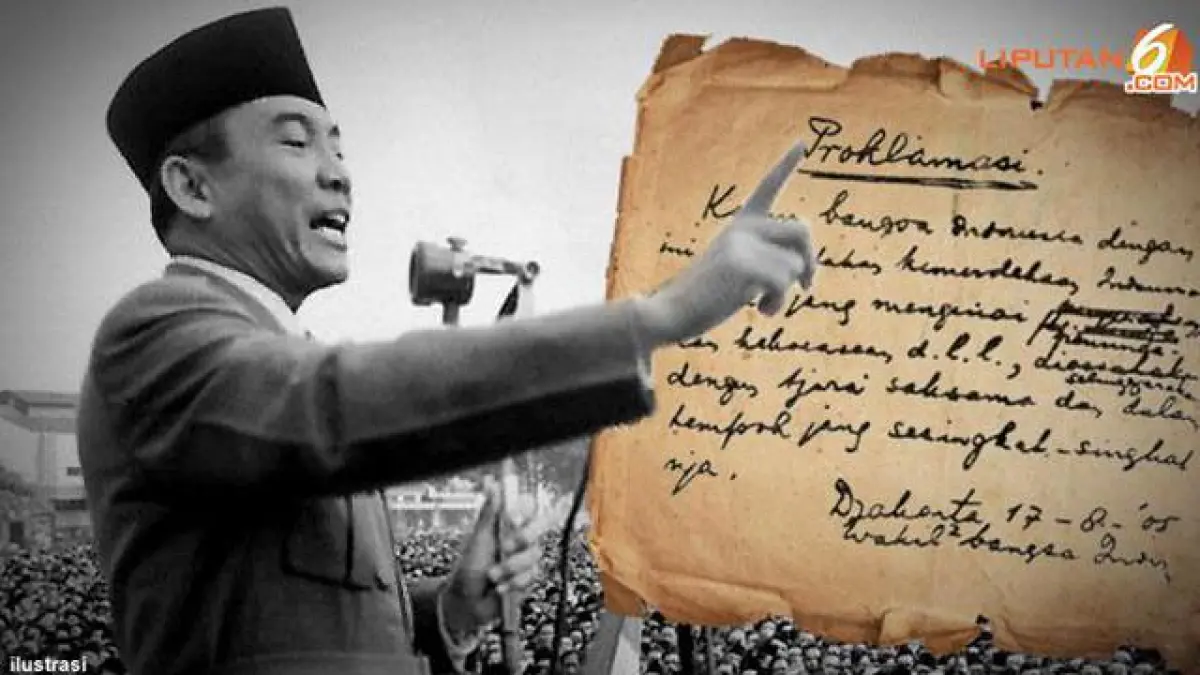 LIPUTAN6.COM
Proklamasi.
bangsa Indonesia dengan
ini kemerdekaan
jang mengenai
kekoeasaan d.l.l., dioesahakan
diselenggarakan
dengan tjara saksama dan dalam
tempoh jang sesingkat-singkat
nja.
Djakarta, 17-8-'05
Wakil2 bangsa
ilustrasi